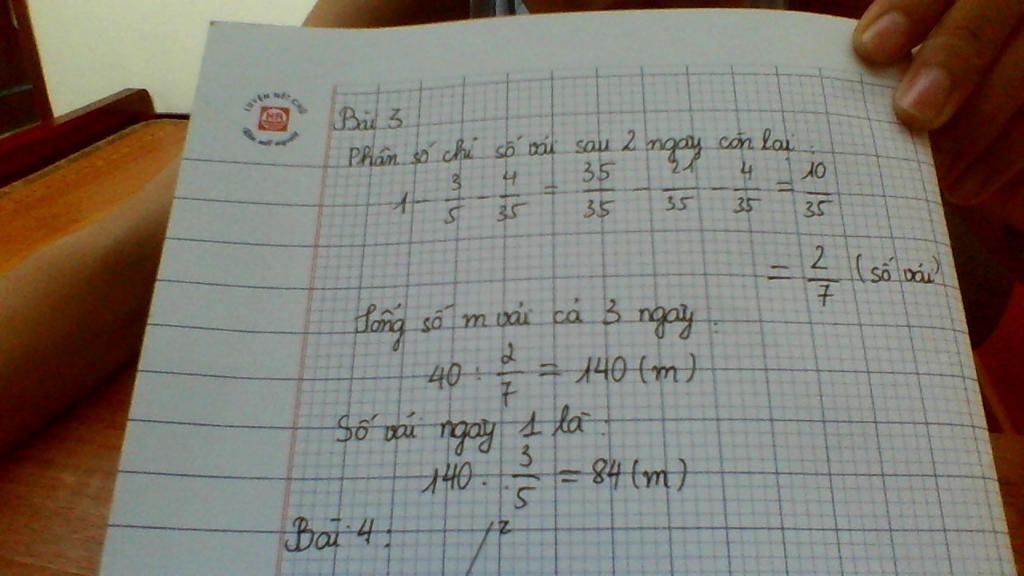 LUYỆN NÉT CHỮ
HA
Bài 3
Phân số chỉ số vải sau 2 ngày còn lại:
1 - 3/5 - 4/35 = 35/35 - 21/35 - 4/35 = 10/35
= 2/7 (số vải)
Tổng số m vải cả 3 ngày:
40 : 2/7 = 140 (m)
Số vải ngày 1 là:
140 . 3/5 = 84 (m)
Bài 4:
z